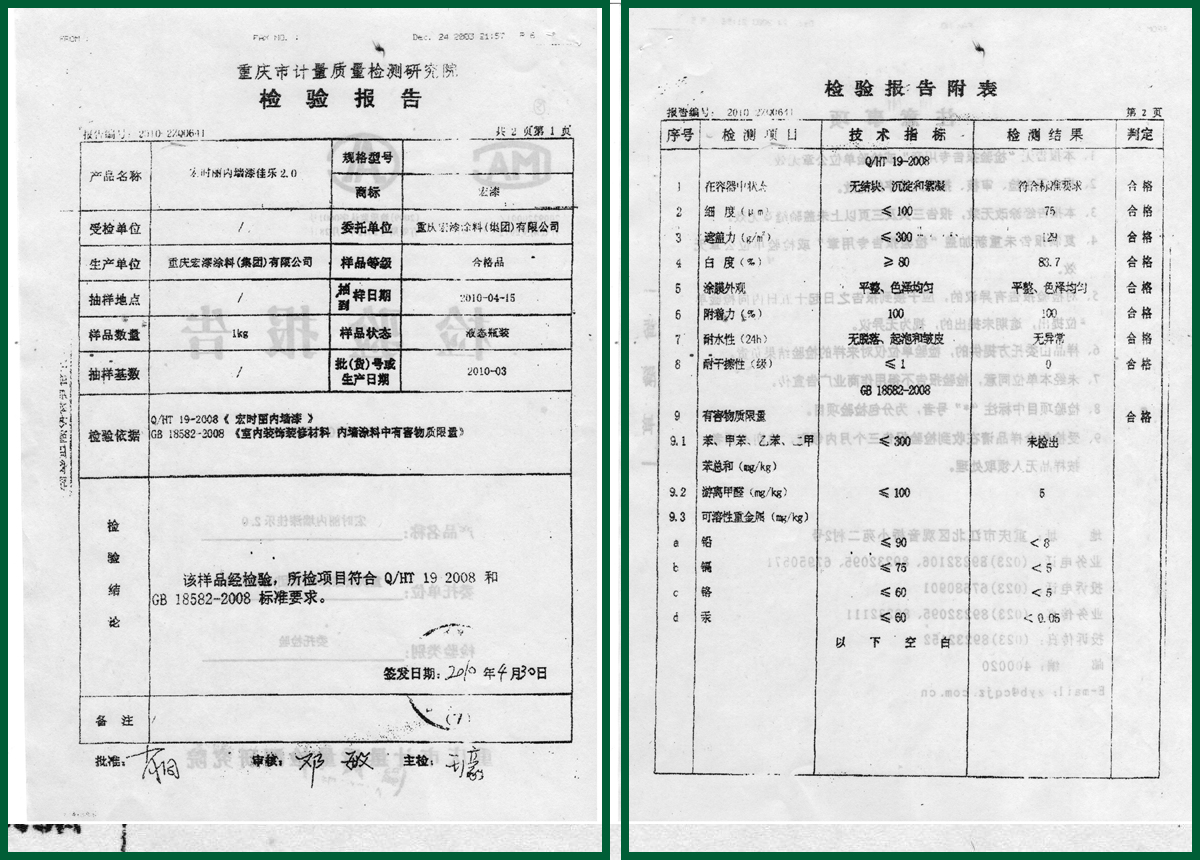 FAX NO. :
Dec. 24 2003 21:57
重庆市计量质量检测研究院
检 验 报 告
报告编号: 2010-ZZQ0641
共 2 页第 1 页
产品名称
宏时丽内墙漆佳乐2.0
规格型号
商标
宏漆
受检单位
/
委托单位
重庆宏漆涂料(集团)有限公司
生产单位
重庆宏漆涂料(集团)有限公司
样品等级
合格品
抽样地点
/
抽
到
样日期
2010-04-15
样品数量
1kg
样品状态
液态瓶装
抽样基数
/
批(货)号或
生产日期
2010-03
检验依据
Q/HT 19-2008《 宏时丽内墙漆 》
GB 18582-2008 《室内装饰装修材料 内墙涂料中有害物质限量》
检
验
结
论
该样品经检验，所检项目符合 Q/HT 19 2008 和
GB 18582-2008 标准要求。
签发日期: 2010 年 4 月 30 日
备 注
/
批准:
审核: 邓 敏
主检:
检 验 报 告 附 表
报告编号: 2010 ZZQ0641
第 2 页
序号
检 测 项 目
技 术 指 标
检 测 结 果
判定
Q/HT 19-2008
1 在容器中状态 无结块、沉淀和絮凝 符合标准要求 合 格
2 细 度 (μm) ≤ 100 75 合 格
3 遮盖力 (g/m²) ≤ 300 129 合 格
4 白 度 (%) ≥ 80 83.7 合 格
5 涂膜外观 平整、色泽均匀 平整、色泽均匀 合 格
6 附着力 (%) 100 100 合 格
7 耐水性 (24h) 无脱落、起泡和皱皮 无异常 合 格
8 耐干擦性 (级) ≤ 1 0 合 格
GB 18582-2008
9 有害物质限量 合 格
9.1 苯、甲苯、乙苯、二甲 ≤ 300 未检出
苯总和 (mg/kg)
9.2 游离甲醛 (mg/kg) ≤ 100 5
9.3 可溶性重金属 (mg/kg)
a 铅 ≤ 90 < 8
b 镉 ≤ 75 < 5
c 铬 ≤ 60 < 5
d 汞 ≤ 60 < 0.05
以 下 空 白